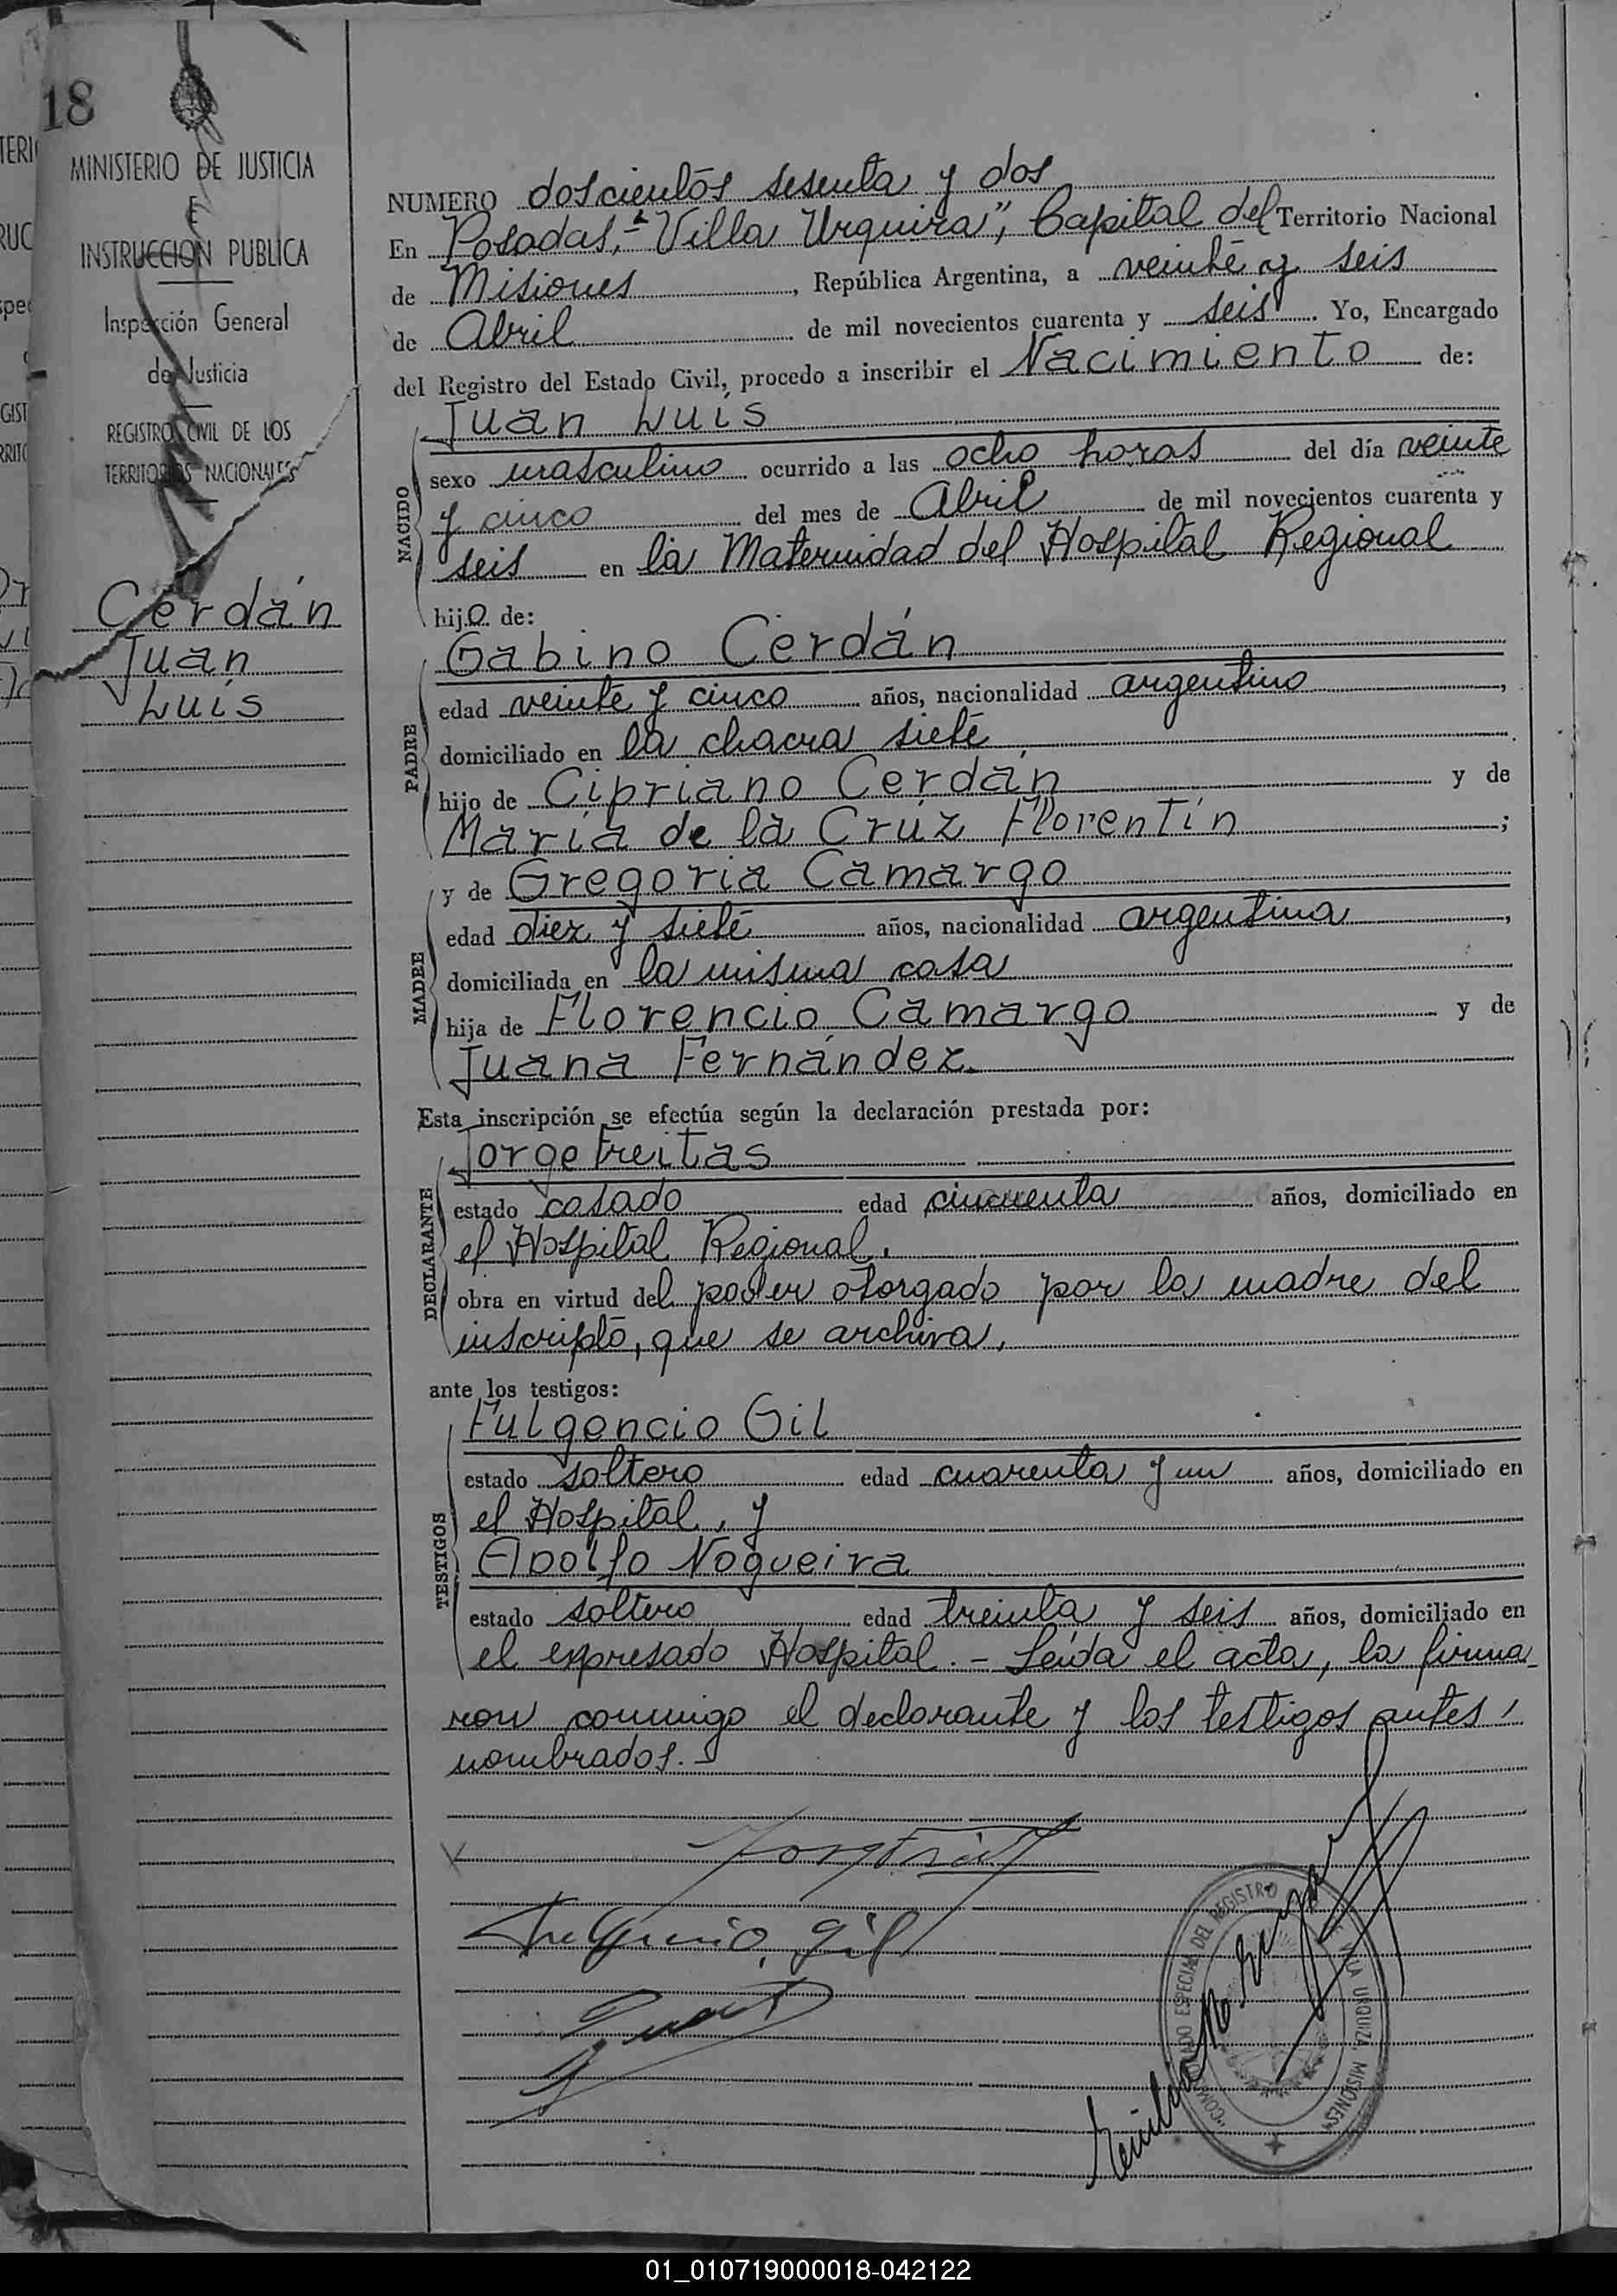 18
MINISTERIO DE JUSTICIA
E
INSTRUCCION PUBLICA
Inspección General
de Justicia
REGISTRO CIVIL DE LOS
TERRITORIOS NACIONALES
Cerdán
Juan
Luis
NUMERO doscientos sesenta y dos
En Posadas, "Villa Urquiza", Capital del Territorio Nacional
de Misiones, República Argentina, a veinte y seis
de Abril de mil novecientos cuarenta y seis. Yo, Encargado
del Registro del Estado Civil, procedo a inscribir el Nacimiento de:
NACIDO
Juan Luis
sexo masculino ocurrido a las ocho horas del día veinte
y cinco del mes de Abril de mil novecientos cuarenta y
seis en la Maternidad del Hospital Regional
hijo de:
PADRE
Gabino Cerdán
edad veinte y cinco años, nacionalidad argentino,
domiciliado en la chacra siete,
hijo de Cipriano Cerdán y de
María de la Cruz Florentín;
MADRE
y de Gregoria Camargo
edad diez y siete años, nacionalidad argentina,
domiciliada en la misma casa
hija de Florencio Camargo y de
Juana Fernández.
Esta inscripción se efectúa según la declaración prestada por:
DECLARANTE
Jorge Freitas
estado casado edad cincuenta años, domiciliado en
el Hospital Regional.
obra en virtud del poder otorgado por la madre del
inscripto, que se archiva.
ante los testigos:
TESTIGOS
Fulgencio Gil
estado soltero edad cuarenta y un años, domiciliado en
el Hospital, y
Adolfo Nogueira
estado soltero edad treinta y seis años, domiciliado en
el expresado Hospital. - Leída el acta, la firma-
ron conmigo el declarante y los testigos antes
nombrados. -
Fulgencio Gil
ESPECIAL DEL REGISTRO
VILLA URQUIZA MISIONES
01_010719000018-042122